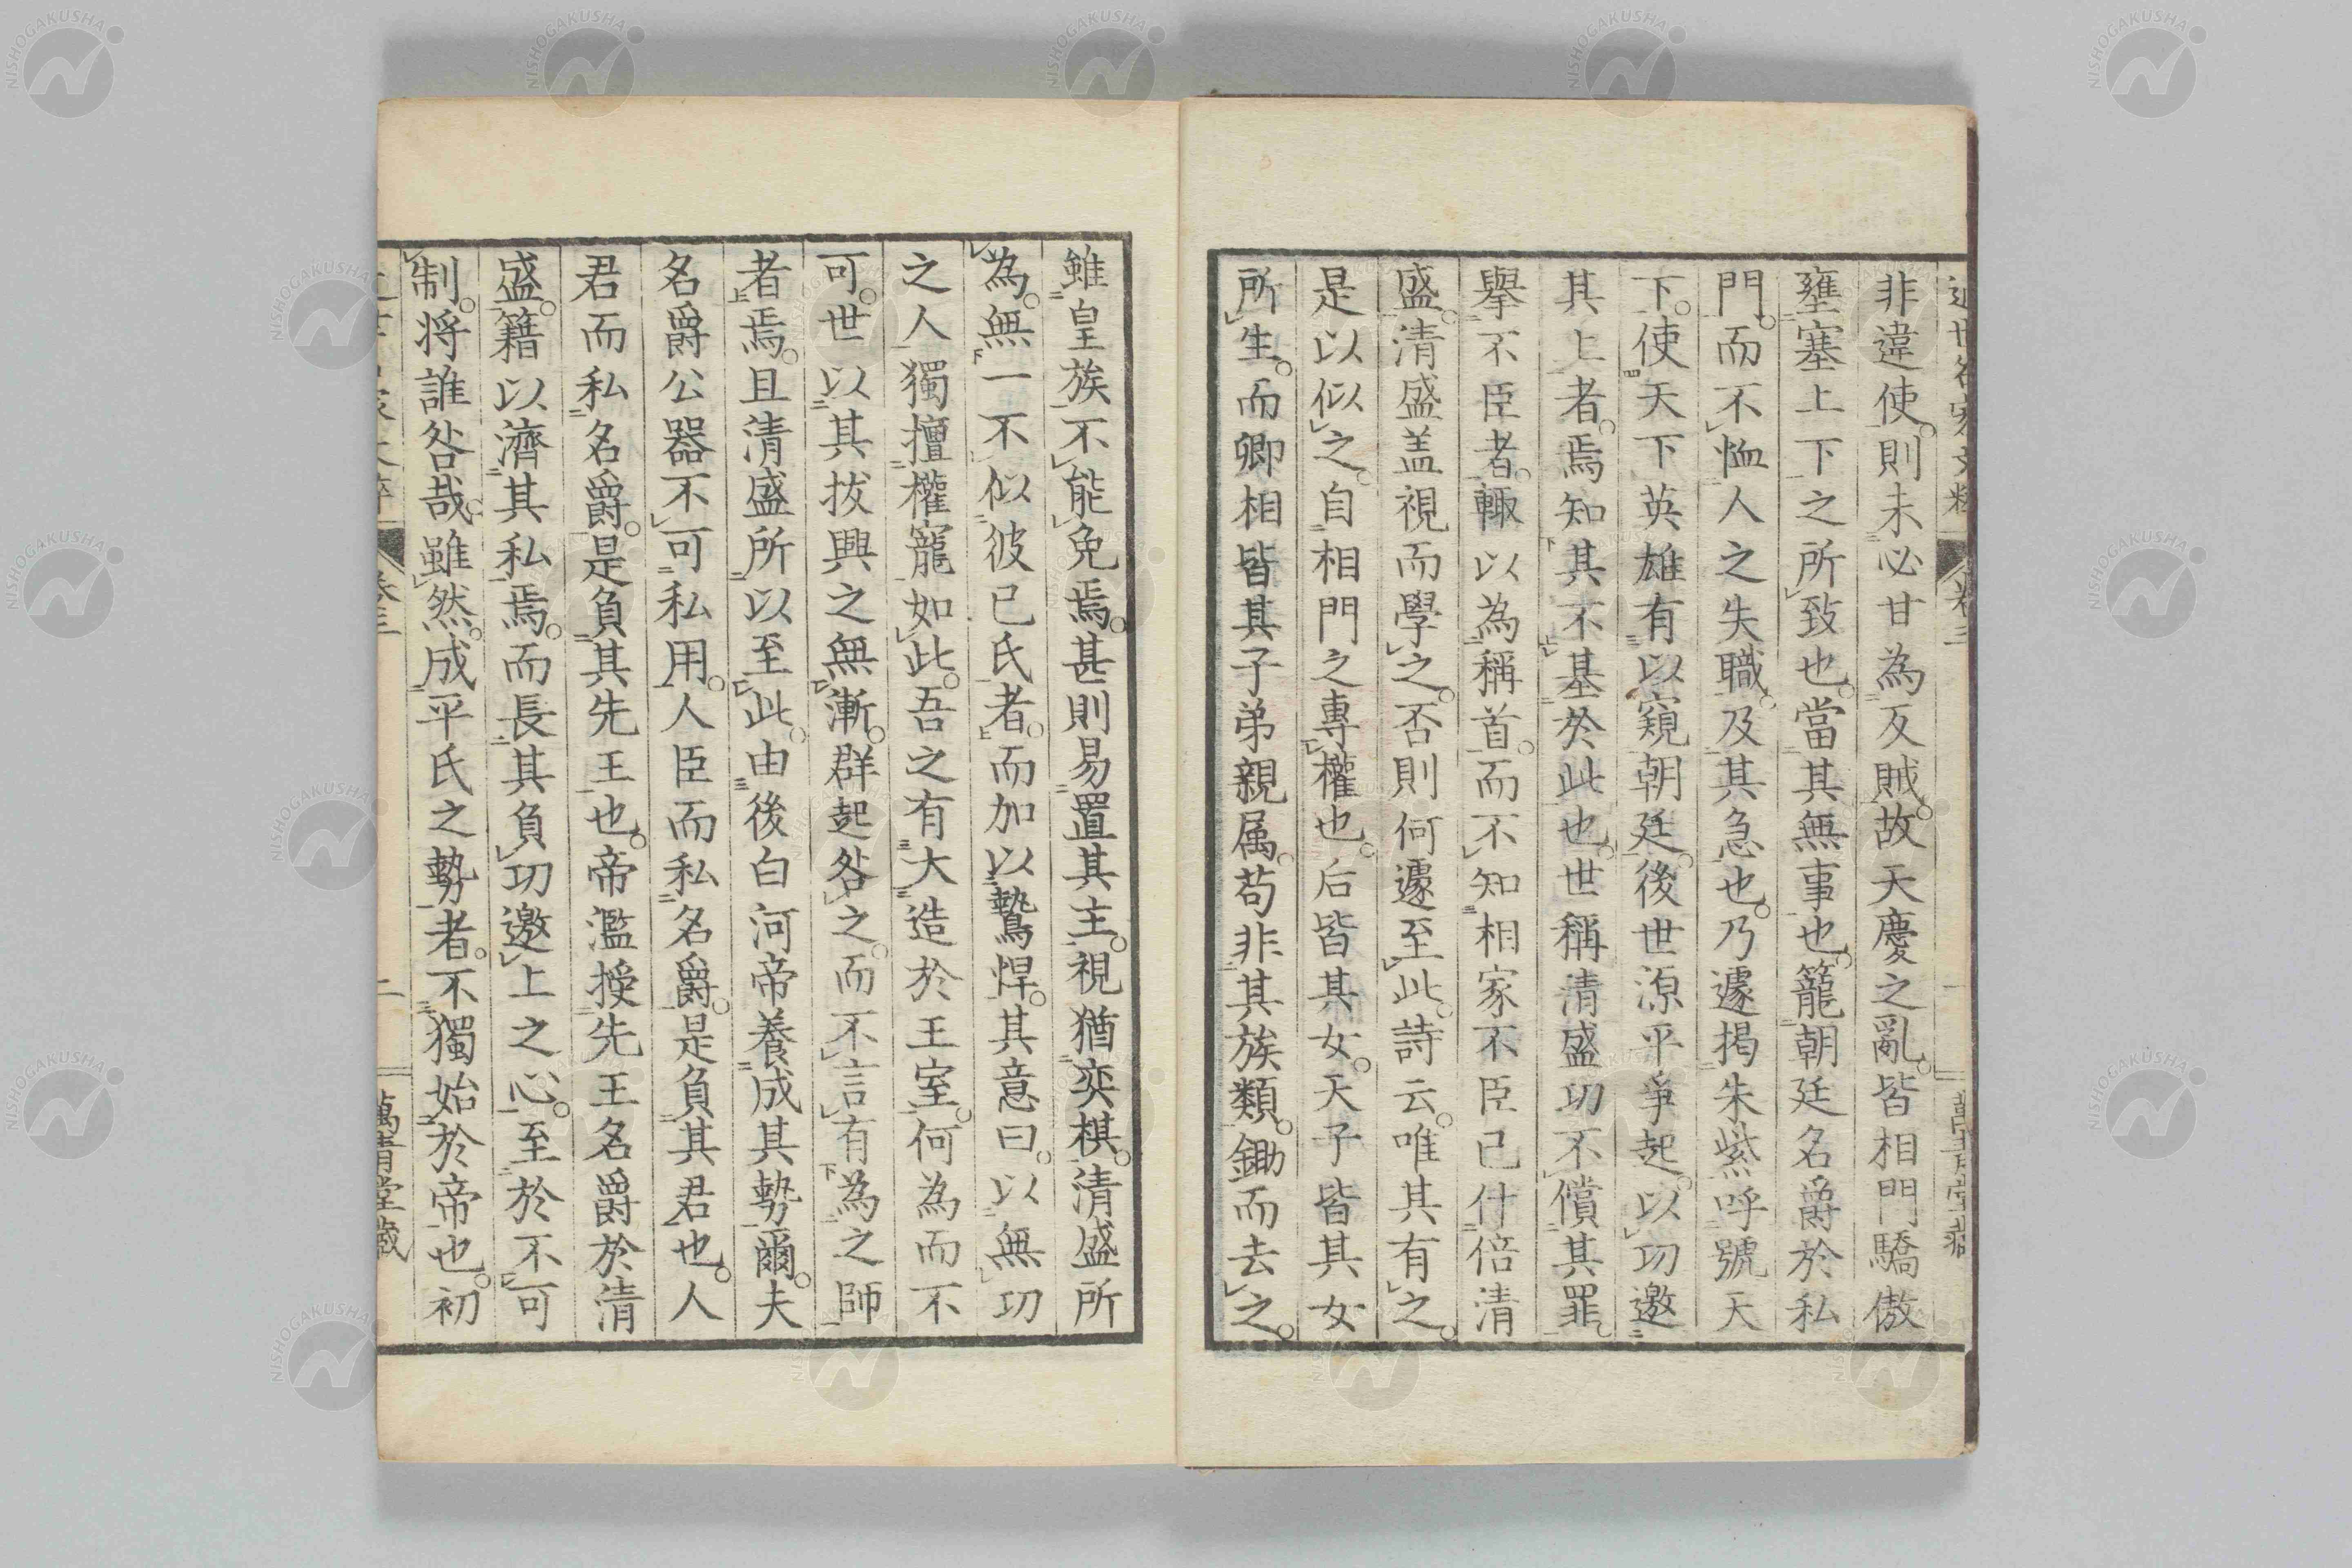 非違使。則未必甘為反賊。故天慶之亂。皆相門驕傲
壅塞上下之所致也。當其無事也。籠朝廷名爵於私
門。而不恤人之失職。及其急也。乃遽掲朱紫呼號天
下。使天下英雄有以窺朝廷。後世源平爭起。以功邀
其上者。焉知其不基於此也。世稱清盛功不償其罪。
擧不臣者。輙以為稱首。而不知相家不臣已什倍清
盛。清盛盖視而學之。否則何遽至此。詩云。唯其有之。
是以似之。自相門之專權也。后皆其女。天子皆其女
所生。而卿相皆其子弟親属。苟非其族類。鋤而去之。
雖皇族不能免焉。甚則易置其主。視猶奕棋。清盛所
為。無一不似彼已氏者。而加以鷙悍。其意曰。以無功
之人獨擅權寵如此。吾之有大造於王室。何為而不
可。世以其拔興之無漸。群起咎之。而不言有為之師
者焉。且清盛所以至此。由後白河帝養成其勢爾。夫
名爵公器不可私用。人臣而私名爵。是負其君也。人
君而私名爵。是負其先王也。帝濫授先王名爵於清
盛。籍以濟其私焉。而長其負功邀上之心。至於不可
制。将誰咎哉。雖然。成平氏之勢者。不獨始於帝也。初
卷三
二
萬青堂藏
NISHOGAKUSHA